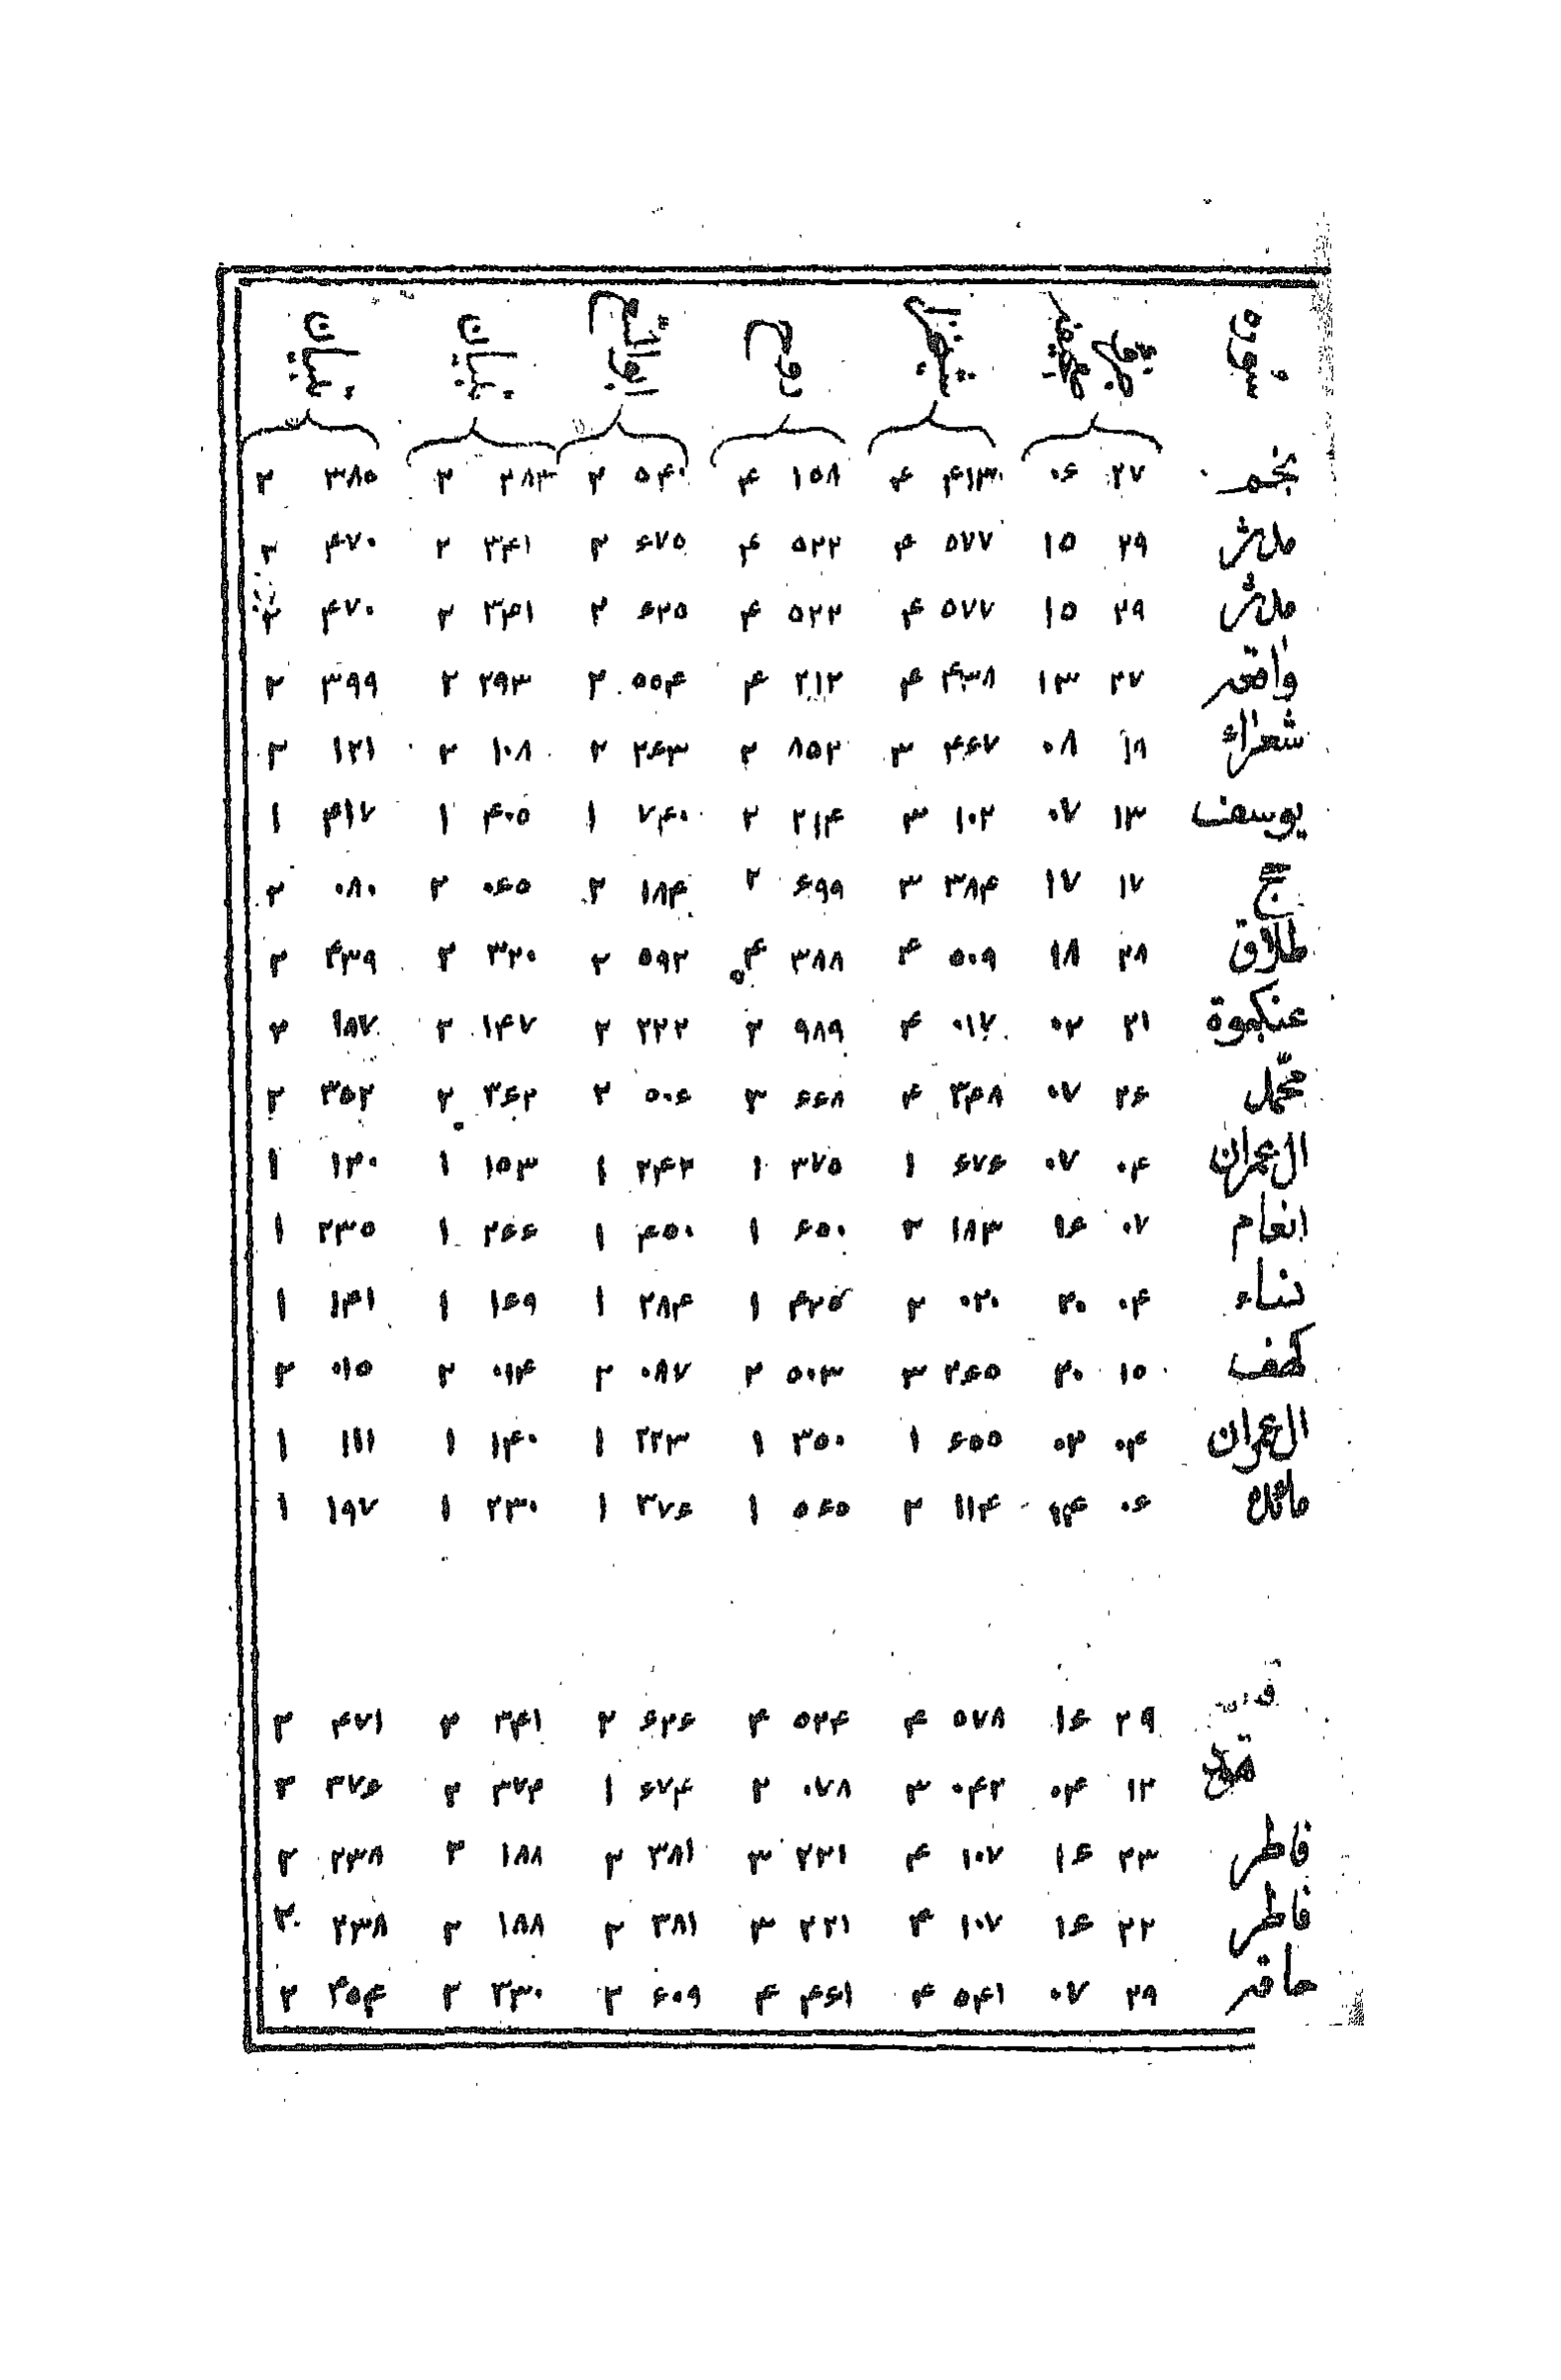 نجم ۲۷ ۰۶ ۴۱۳ ۴ ۱۵۸ ۴ ۵۴۰ ۲ ۲۸۳ ۲ ۳۸۵ ۲
مدثر ۲۹ ۱۵ ۵۷۷ ۴ ۵۲۲ ۴ ۶۷۵ ۲ ۳۴۱ ۲ ۴۷۰ ۲
مدثر ۲۹ ۱۵ ۵۷۷ ۴ ۵۲۲ ۴ ۶۲۵ ۲ ۳۴۱ ۲ ۴۷۰ ۲
واقعه ۲۷ ۱۳ ۴۳۸ ۴ ۲۱۲ ۴ ۵۵۴ ۲ ۲۹۳ ۲ ۳۹۹ ۲
شعراء ۱۹ ۰۸ ۴۶۷ ۳ ۸۵۲ ۲ ۲۶۳ ۲ ۱۰۸ ۲ ۱۲۱ ۲
يوسف ۱۳ ۰۷ ۱۰۲ ۳ ۲۱۴ ۲ ۷۴۰ ۱ ۴۰۵ ۱ ۴۱۷ ۱
حج ۱۷ ۱۷ ۳۸۴ ۳ ۶۹۹ ۲ ۱۸۴ ۲ ۰۶۵ ۲ ۰۸۰ ۲
طلاق ۲۸ ۱۸ ۵۰۹ ۴ ۳۸۸ ۴ ۵۹۲ ۲ ۳۲۰ ۲ ۴۳۹ ۲
عنكبوة ۲۱ ۰۲ ۰۱۷ ۴ ۹۸۹ ۲ ۲۲۲ ۲ ۱۴۷ ۲ ۱۸۷ ۲
محمل ۲۶ ۰۷ ۳۴۸ ۴ ۶۶۸ ۳ ۵۰۶ ۲ ۲۶۲ ۲ ۳۵۲ ۲
ال عمران ۰۴ ۰۷ ۶۷۶ ۱ ۳۷۵ ۱ ۲۴۲ ۱ ۱۵۳ ۱ ۱۲۰ ۱
انعام ۰۷ ۱۶ ۱۸۳ ۲ ۶۵۰ ۱ ۴۵۰ ۱ ۲۶۶ ۱ ۲۳۵ ۱
نساء ۰۴ ۲۰ ۰۲۰ ۲ ۴۲۵ ۱ ۲۸۴ ۱ ۱۶۹ ۱ ۱۴۱ ۱
كهف ۱۵ ۲۰ ۲۶۵ ۳ ۵۰۳ ۲ ۰۸۷ ۲ ۰۱۴ ۲ ۰۱۵ ۲
ال عمران ۰۴ ۰۳ ۶۵۵ ۱ ۳۵۰ ۱ ۲۲۳ ۱ ۱۴۰ ۱ ۱۱۱ ۱
مائده ۰۶ ۱۴ ۱۱۴ ۲ ۵۶۵ ۱ ۳۷۶ ۱ ۲۳۰ ۱ ۱۹۷ ۱
۲۹ ۱۶ ۵۷۸ ۴ ۵۲۴ ۴ ۶۲۶ ۲ ۳۴۱ ۲ ۴۷۱ ۲
۱۲ ۰۴ ۰۴۲ ۳ ۰۷۸ ۲ ۶۷۴ ۱ ۳۷۴ ۲ ۳۷۶ ۲
فاطر ۲۳ ۱۶ ۱۰۷ ۴ ۲۲۱ ۳ ۳۸۱ ۲ ۱۸۸ ۲ ۲۳۸ ۲
فاطر ۲۲ ۱۶ ۱۰۷ ۴ ۲۲۱ ۳ ۳۸۱ ۲ ۱۸۸ ۲ ۲۳۸ ۲
حاقه ۲۹ ۰۷ ۵۴۱ ۴ ۴۶۱ ۴ ۶۰۹ ۲ ۳۳۰ ۲ ۴۵۴ ۲